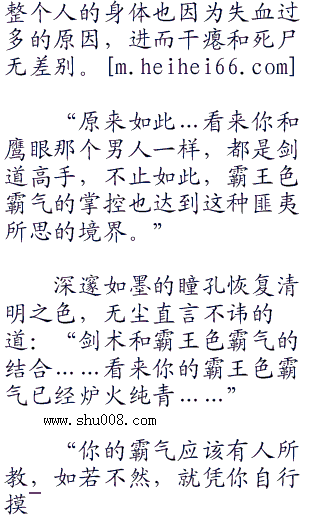 整个人的身体也因为失血过
多的原因，进而干瘪和死尸
无差别。[m.heihei66.com]
“原来如此…看来你和
鹰眼那个男人一样，都是剑
道高手，不止如此，霸王色
霸气的掌控也达到这种匪夷
所思的境界。”
深邃如墨的瞳孔恢复清
明之色，无尘直言不讳的
道：“剑术和霸王色霸气的
结合……看来你的霸王色霸
气已经炉火纯青……”
www.shu008.com
“你的霸气应该有人所
教，如若不然，就凭你自行
摸